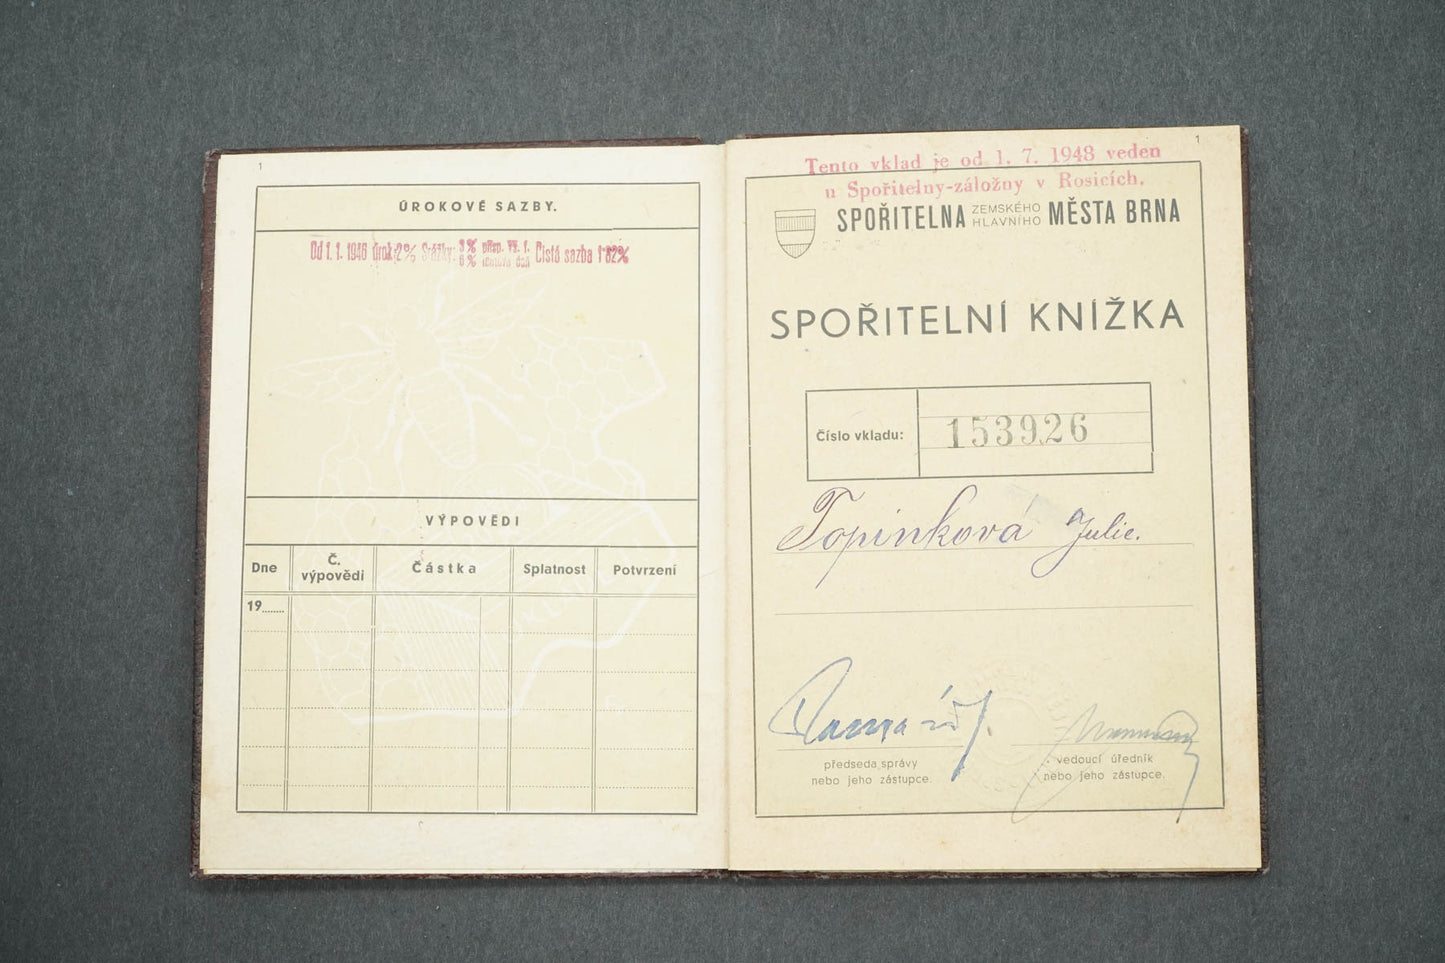 1
ÚROKOVÉ SAZBY.
Od 1. 1. 1946 úrok 2% Srážky: 3% přísp. vš. f. 6% rentová daň Čistá sazba 1·82%
VÝPOVĚDI
Dne
Č. výpovědi
Částka
Splatnost
Potvrzení
19......
1
Tento vklad je od 1. 7. 1948 veden
u Spořitelny-záložny v Rosicích.
SPOŘITELNA ZEMSKÉHO HLAVNÍHO MĚSTA BRNA
SPOŘITELNÍ KNÍŽKA
Číslo vkladu: 153926
Topinková Julie.
předseda správy
nebo jeho zástupce.
vedoucí úředník
nebo jeho zástupce.